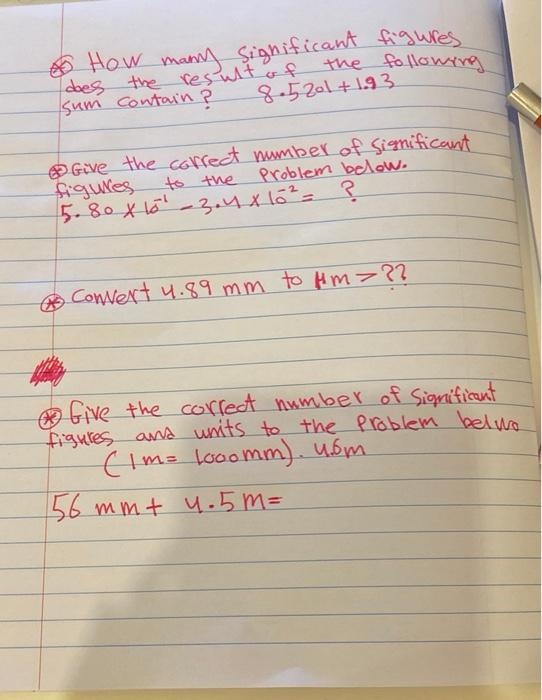 ⊛ How many significant figures
does the result of the following
sum contain? 8.5201 + 1.93
⊛ Give the correct number of significant
figures to the problem below.
5.80 x 10⁻¹ - 3.4 x 10⁻² = ?
⊛ Convert 4.89 mm to μm > ??
⊛ Give the correct number of significant
figures and units to the problem belwo
(1m = 1000mm). 4.6m
56 mm + 4.5 m =